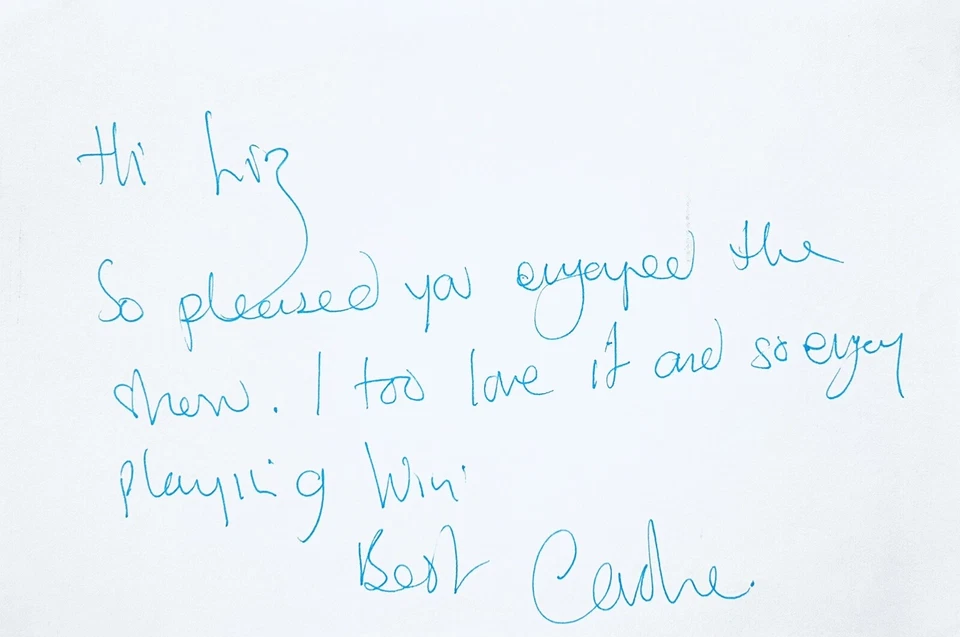 Hi Liz
So pleased you enjoyed the
show. I too love it and so enjoy
playing Win
Best